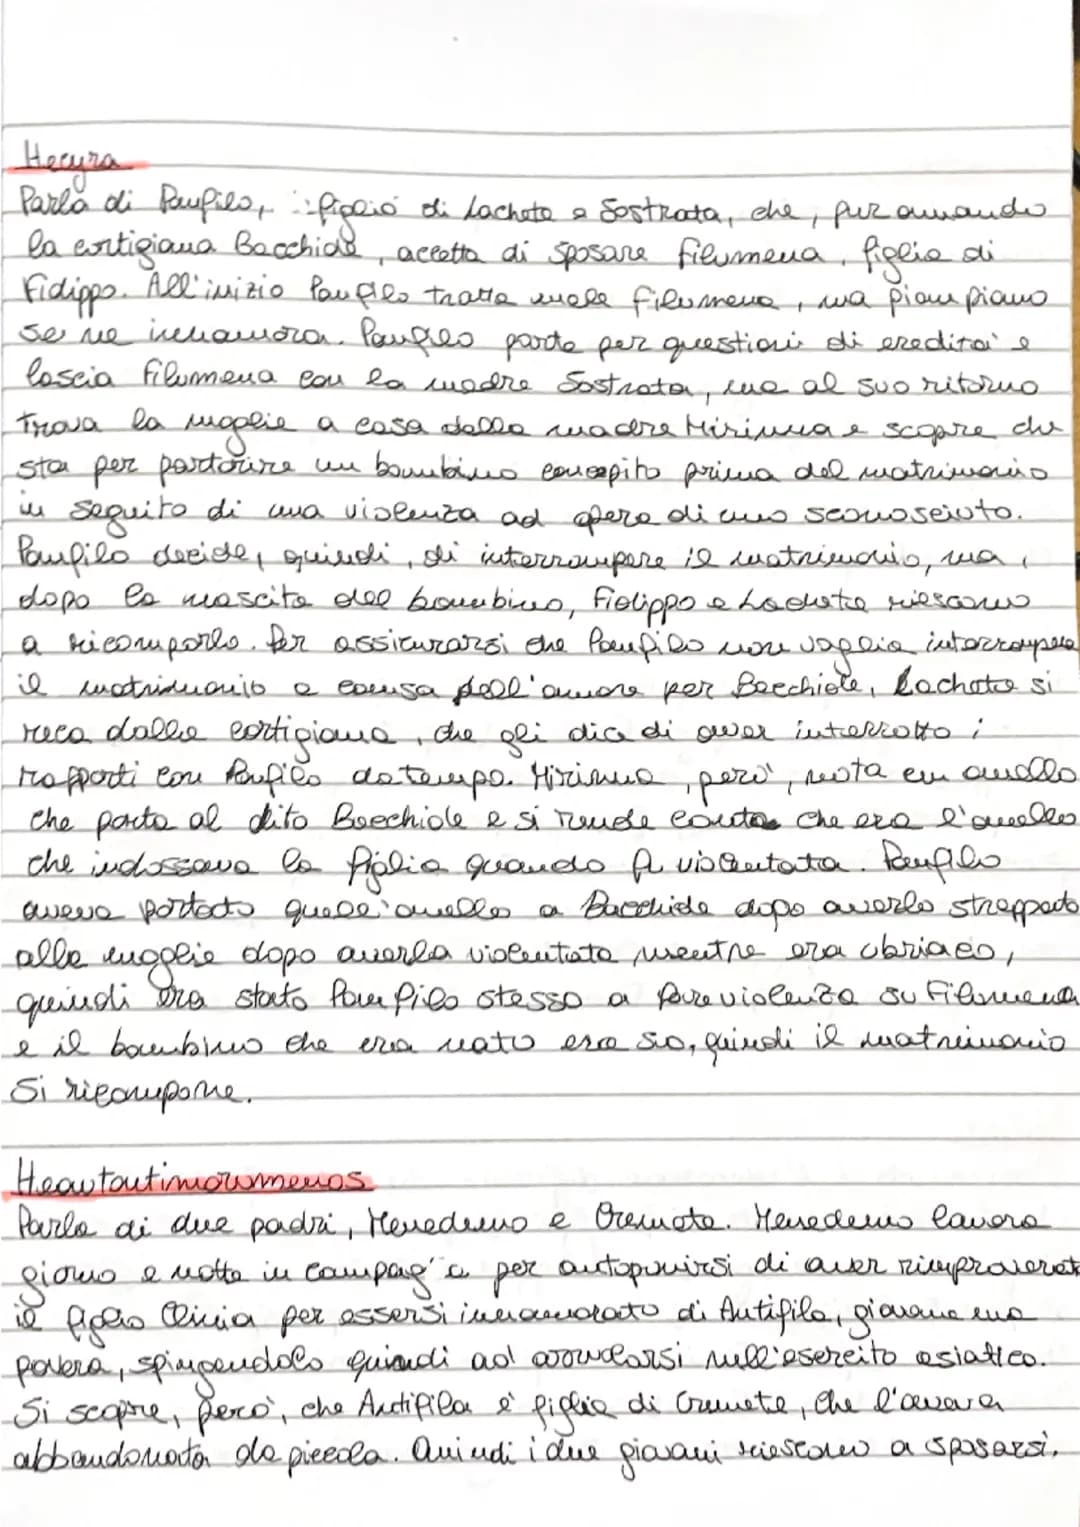 Hecyra
Parla di Panfilo, figlio di Lachete e Sostrata, che, pur amando
la cortigiana Bacchide, accetta di sposare Filumena, figlia di
Fidippo. All'inizio Panfilo tratta male Filumena, ma pian piano
se ne innamora. Panfilo parte per questioni di eredità e
lascia Filumena con la madre Sostrata, ma al suo ritorno
trova la moglie a casa della madre Mirinna e scopre che
sta per partorire un bambino concepito prima del matrimonio
in seguito di una violenza ad opera di uno sconosciuto.
Panfilo decide, quindi, di interrompere il matrimonio, ma,
dopo la nascita del bambino, Fidippo e Lachete riescono
a ricomporlo. Per assicurarsi che Panfilo non voglia interrompere
il matrimonio a causa dell'amore per Bacchide, Lachete si
reca dalla cortigiana, che gli dice di aver interrotto i
rapporti con Panfilo da tempo. Mirinna, però, nota un anello
che porta al dito Bacchide e si rende conto che era l'anello
che indossava la figlia quando fu violentata. Panfilo
aveva portato quell'anello a Bacchide dopo averlo strappato
alla moglie dopo averla violentata mentre era ubriaco,
quindi era stato Panfilo stesso a fare violenza su Filumena
e il bambino che era nato era suo, quindi il matrimonio
si ricompone.
Heautontimorumenos
Parla di due padri, Menedemo e Cremete. Menedemo lavora
giorno e notte in campag a per autopunirsi di aver rimproverat
il figlio Clinia per essersi innamorato di Antifila, giovane ma
povera, spingendolo quindi ad arruolarsi nell'esercito asiatico.
Si scopre, però, che Antifila è figlia di Cremete, che l'aveva
abbandonata da piccola. Quindi i due giovani riescono a sposarsi.